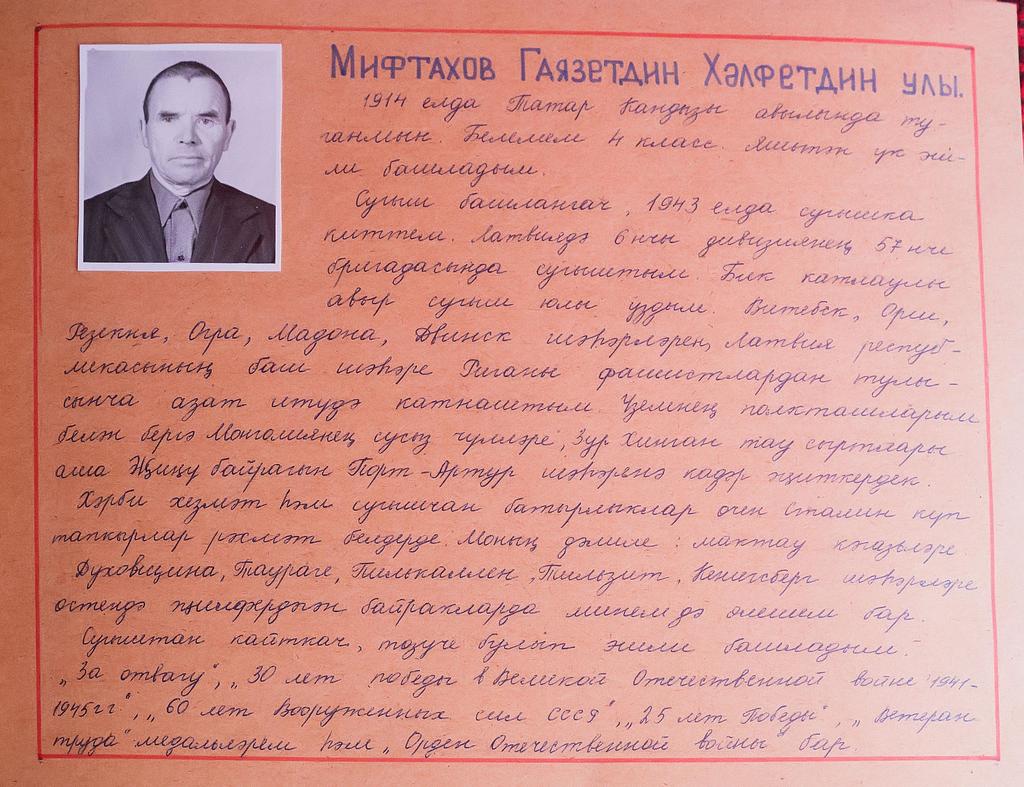 Мифтахов Гаязетдин Хәлфетдин улы.
1914 елда Татар Кандызы авылында ту-
ганмын. Белемем 4 класс. Яшьтән үк эш-
ли башладым.
Сугыш башлангач, 1943 елда сугышка
киттем. Латвиядә 6 нчы дивизиянең 57 нче
бригадасында сугыштым. Бик катлаулы
авыр сугыш юлы үздым. Витебск, Орш,
Резекня, Огра, Мадона, Двинск шәһәрләрен, Латвия респуб-
ликасының баш шәһәре Риганы фашистлардан тулы-
сынча азат итүдә катнаштым. Үземнең полкташларым
белән бергә Монголиянең сусыз чүлләре, Зур Хинган тау сыртлары
аша Җиңү байрагын Порт-Артур шәһәренә кадәр җиткердек.
Хәрби хезмәт һәм сугышчан батырлыклар өчен Сталин күп
тапкырлар рәхмәт белдерде. Моның дәлиле: мактау кәгазьләре.
Духовщина, Таураге, Пилькаллен, Тильзит, Кенигсберг шәһәрләре
өстендә җилфердәгән байракларда минем дә өлешем бар.
Сугыштан кайткач, төзүче булып эшли башладым.
„За отвагу", „30 лет победы в Великой Отечественной войне 1941-
1945гг", „60 лет Вооруженных сил СССР", „25 лет Победы", „Ветеран
труда" медальләрем һәм „Орден Отечественной войны" бар.